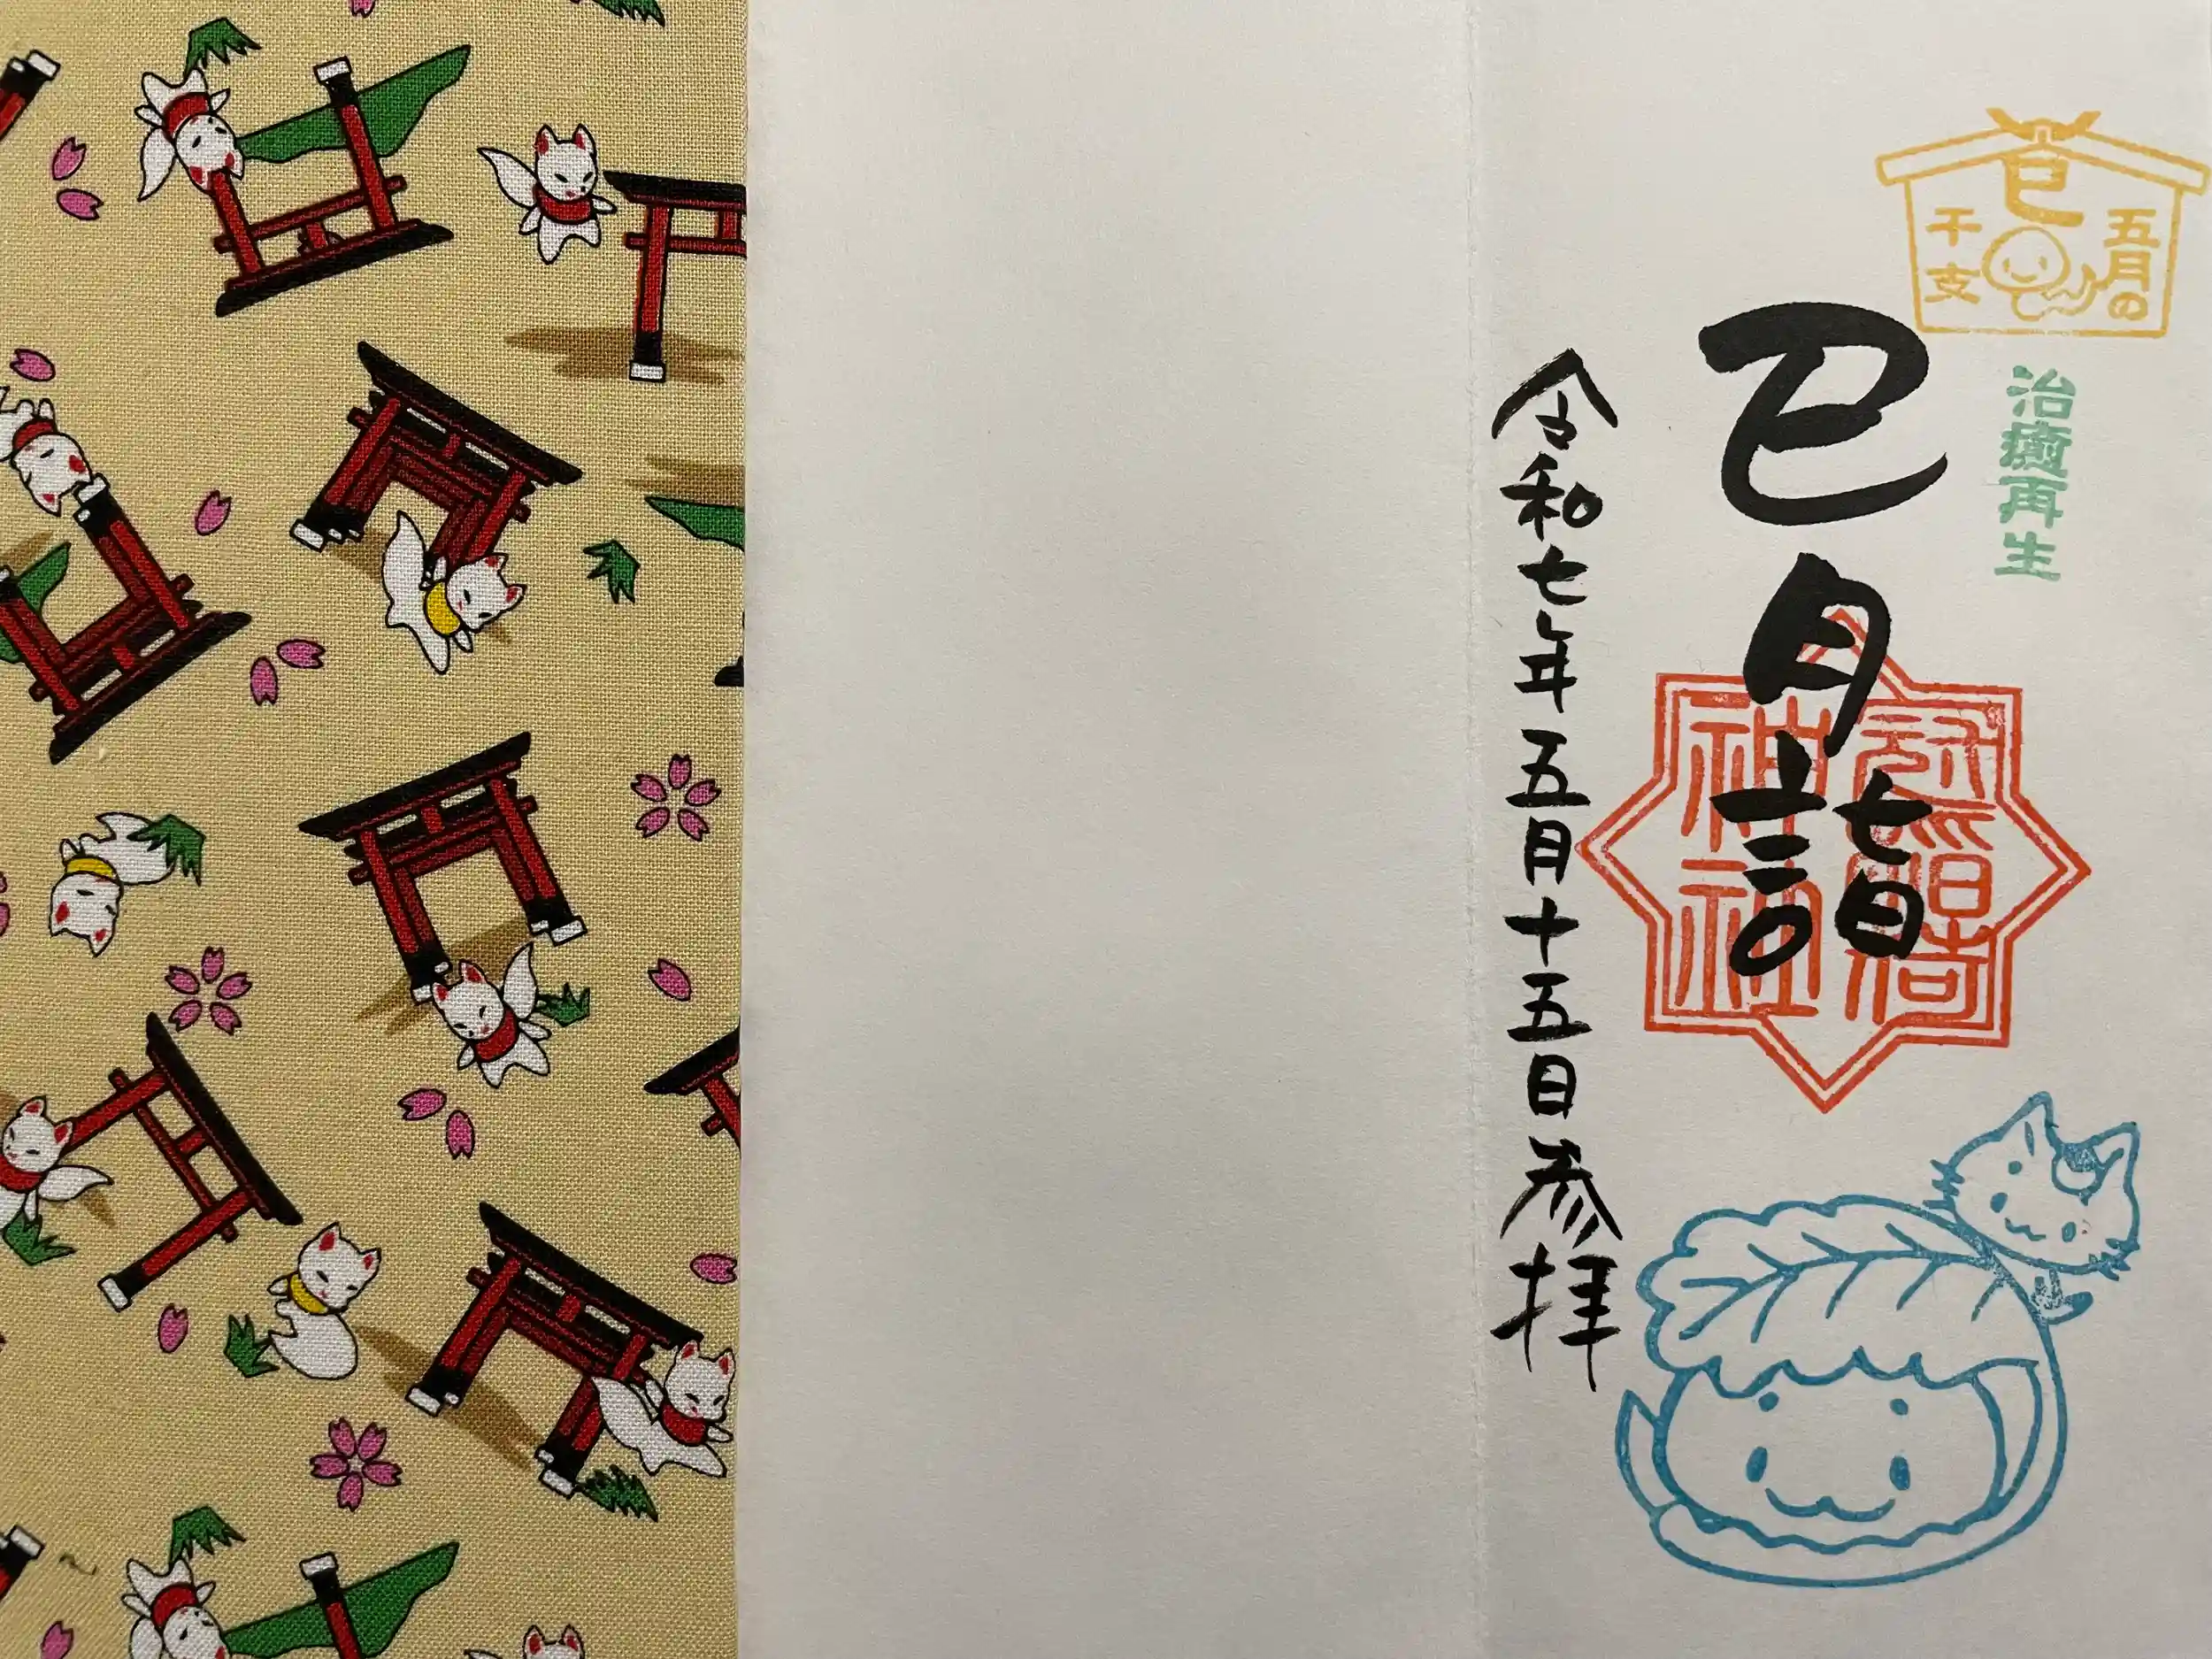 巳
五月の
干支
治癒再生
巳月詣
冠稲荷
神社
令和七年五月十五日参拝